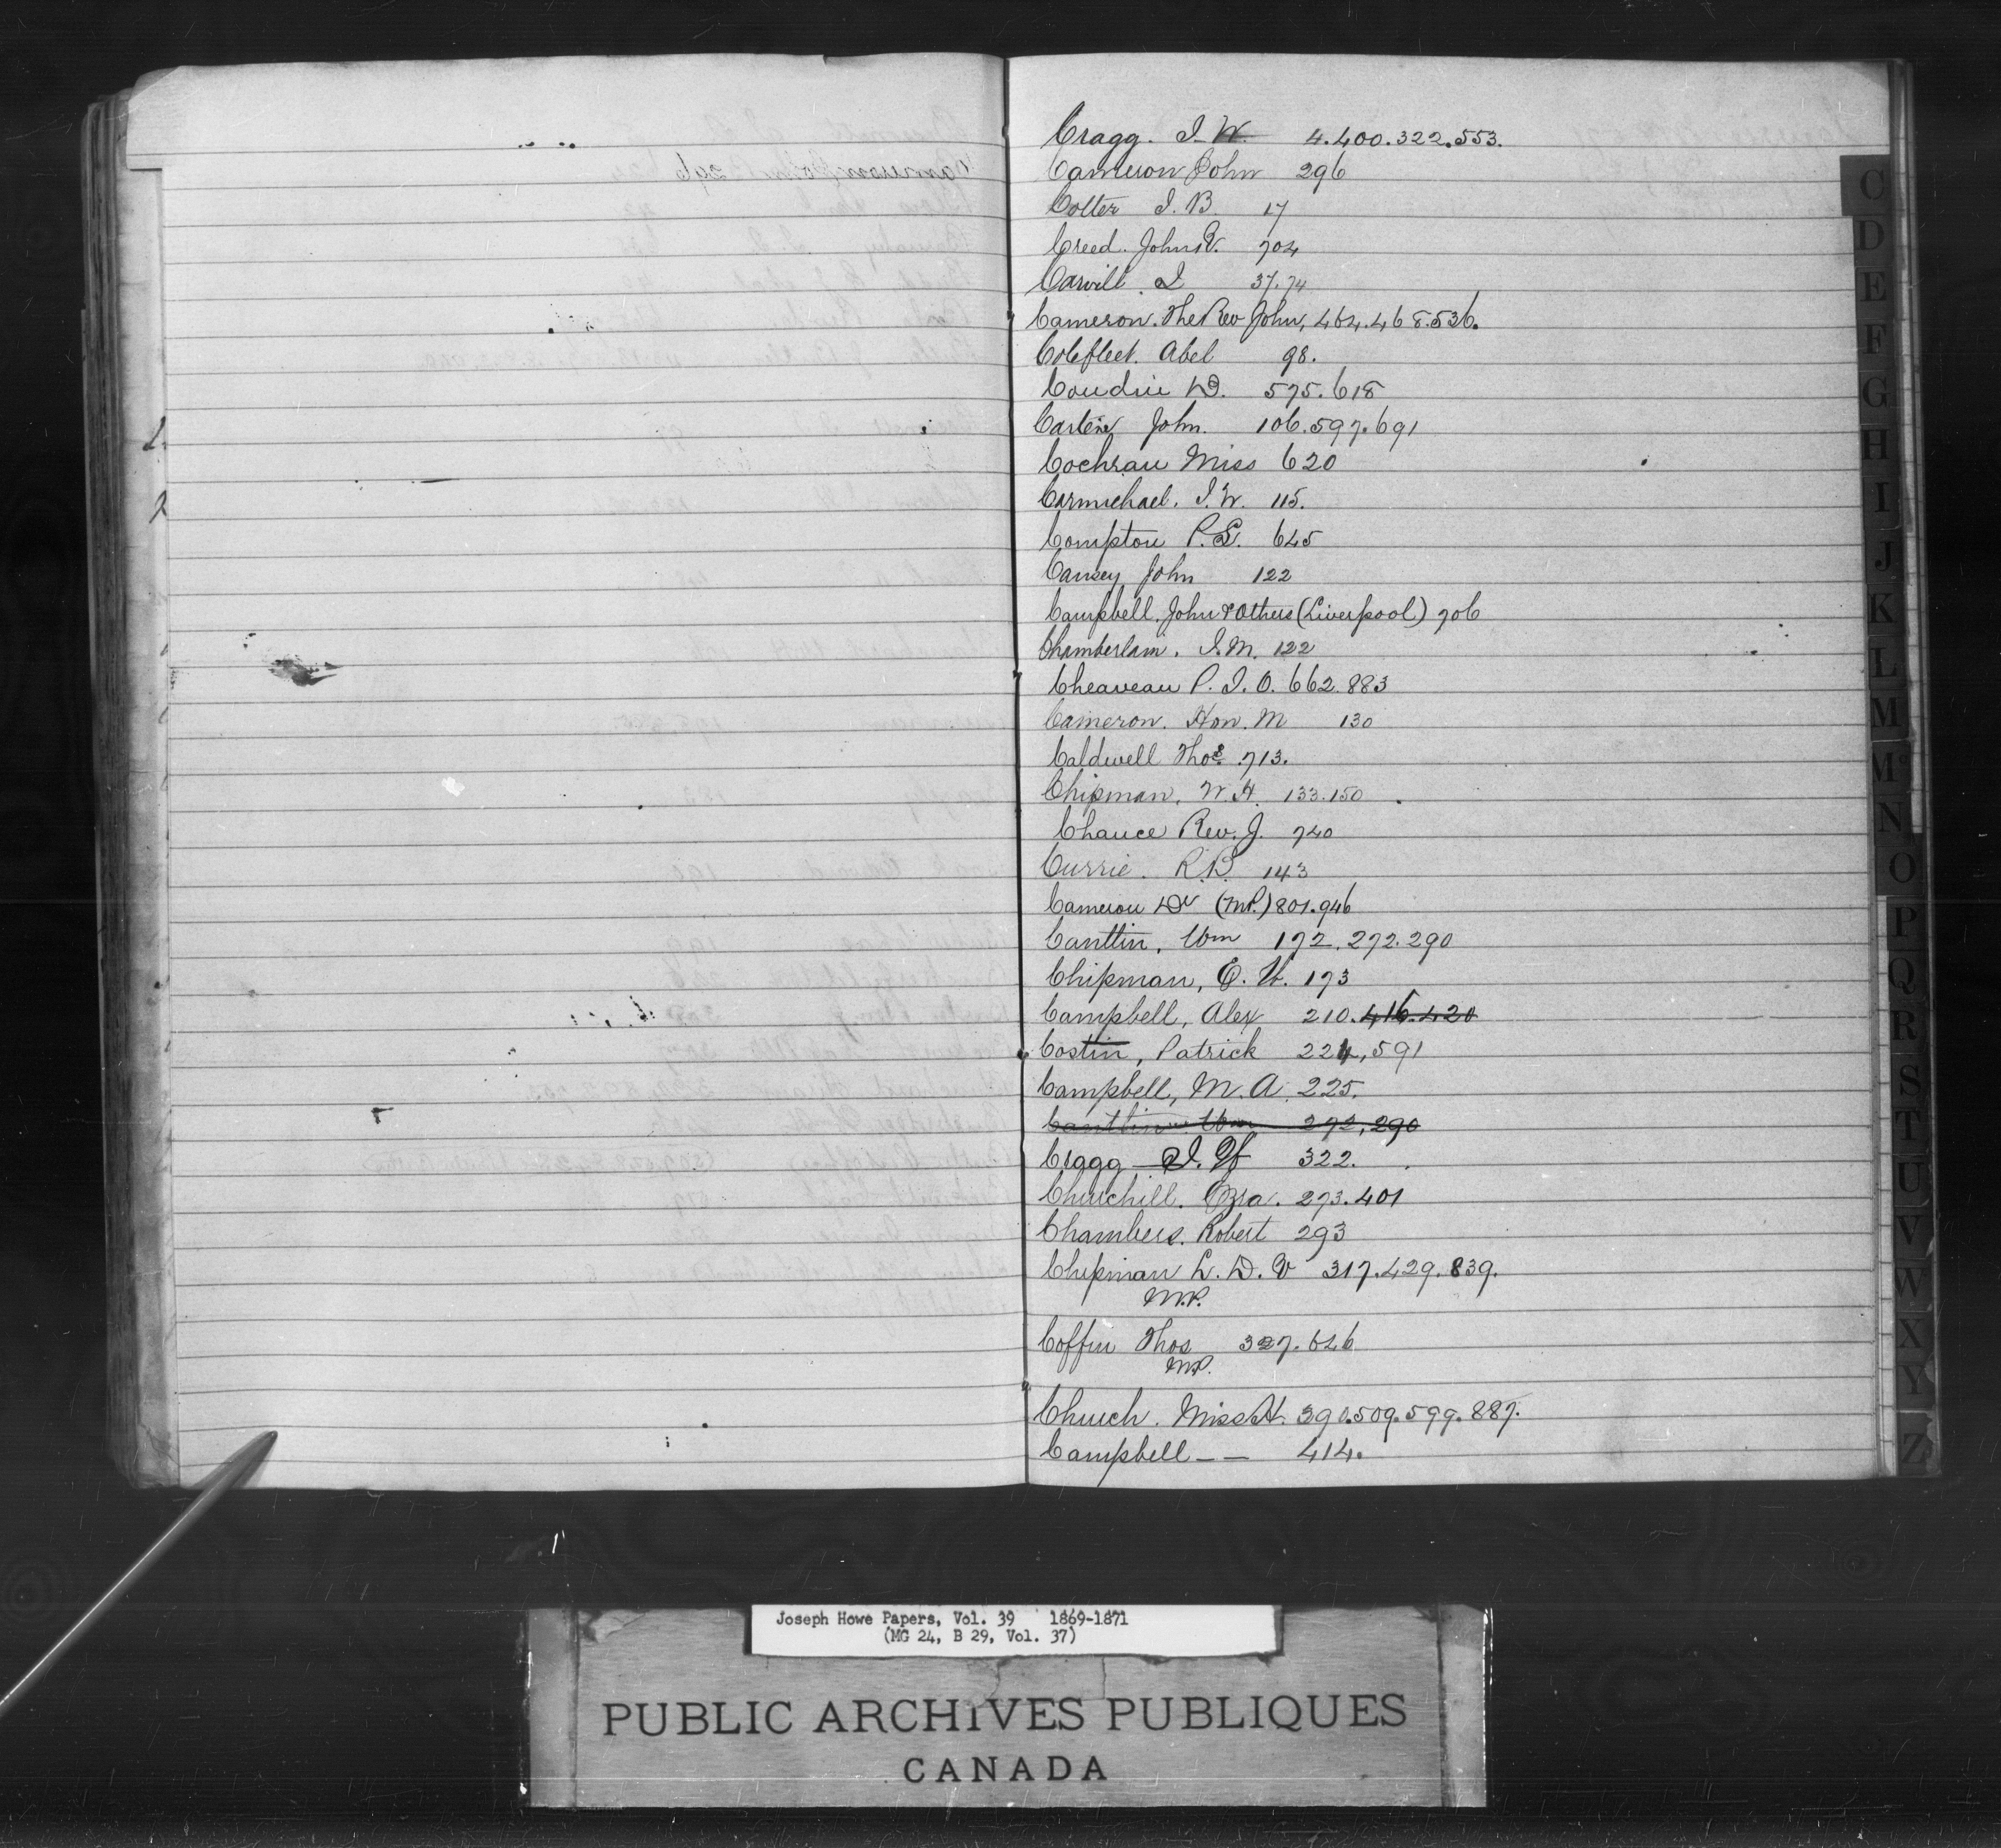 Cragg. I. W. 4.400.322.553.
Cameron John 296
Colter I. B. 17
Creed. John V. 704
Carvill. I 37.74
Cameron. The Rev John, 464.468.536.
Colefleet. Abel 98.
Coudrie D. 575.618
John. 106.597.691
Cochran Miss 620
Carmichael. I. W. 115.
Compton P. S. 645
Cansey John 122
Campbell. John & Others (Liverpool) 706
Chamberlain. I. M. 122
Cheaveau P. I. O. 662.883
Cameron. Hon. M 130
Caldwell Thos. 713.
Chipman. W. H. 133.150
Chance Rev. J. 740
Currie. R. B. 143
Cameron Dr (M.P.) 801.946
Canttin, Wm 172.272.290
Chipman, E. W. 173
Campbell, Alex 210.416.420
Costin, Patrick 224,591
Campbell, M. A. 225.
Cantlin Wm 272,290
Cragg I. W 322.
Churchill. Ezra. 273.401
Chambers. Robert 293
Chipman L. D. V 317.429.839.
M.P.
Coffin Thos 327.626
M.P.
Church. Miss H. 390.509.599.887.
Campbell — — 414.
C
D
E
F
G
H
I
J
K
L
M
Mc
N
O
P
Q
R
S
T
U
V
W
X
Y
Z
Joseph Howe Papers, Vol. 39 1869-1871
(MG 24, B 29, Vol. 37)
PUBLIC ARCHIVES PUBLIQUES
CANADA